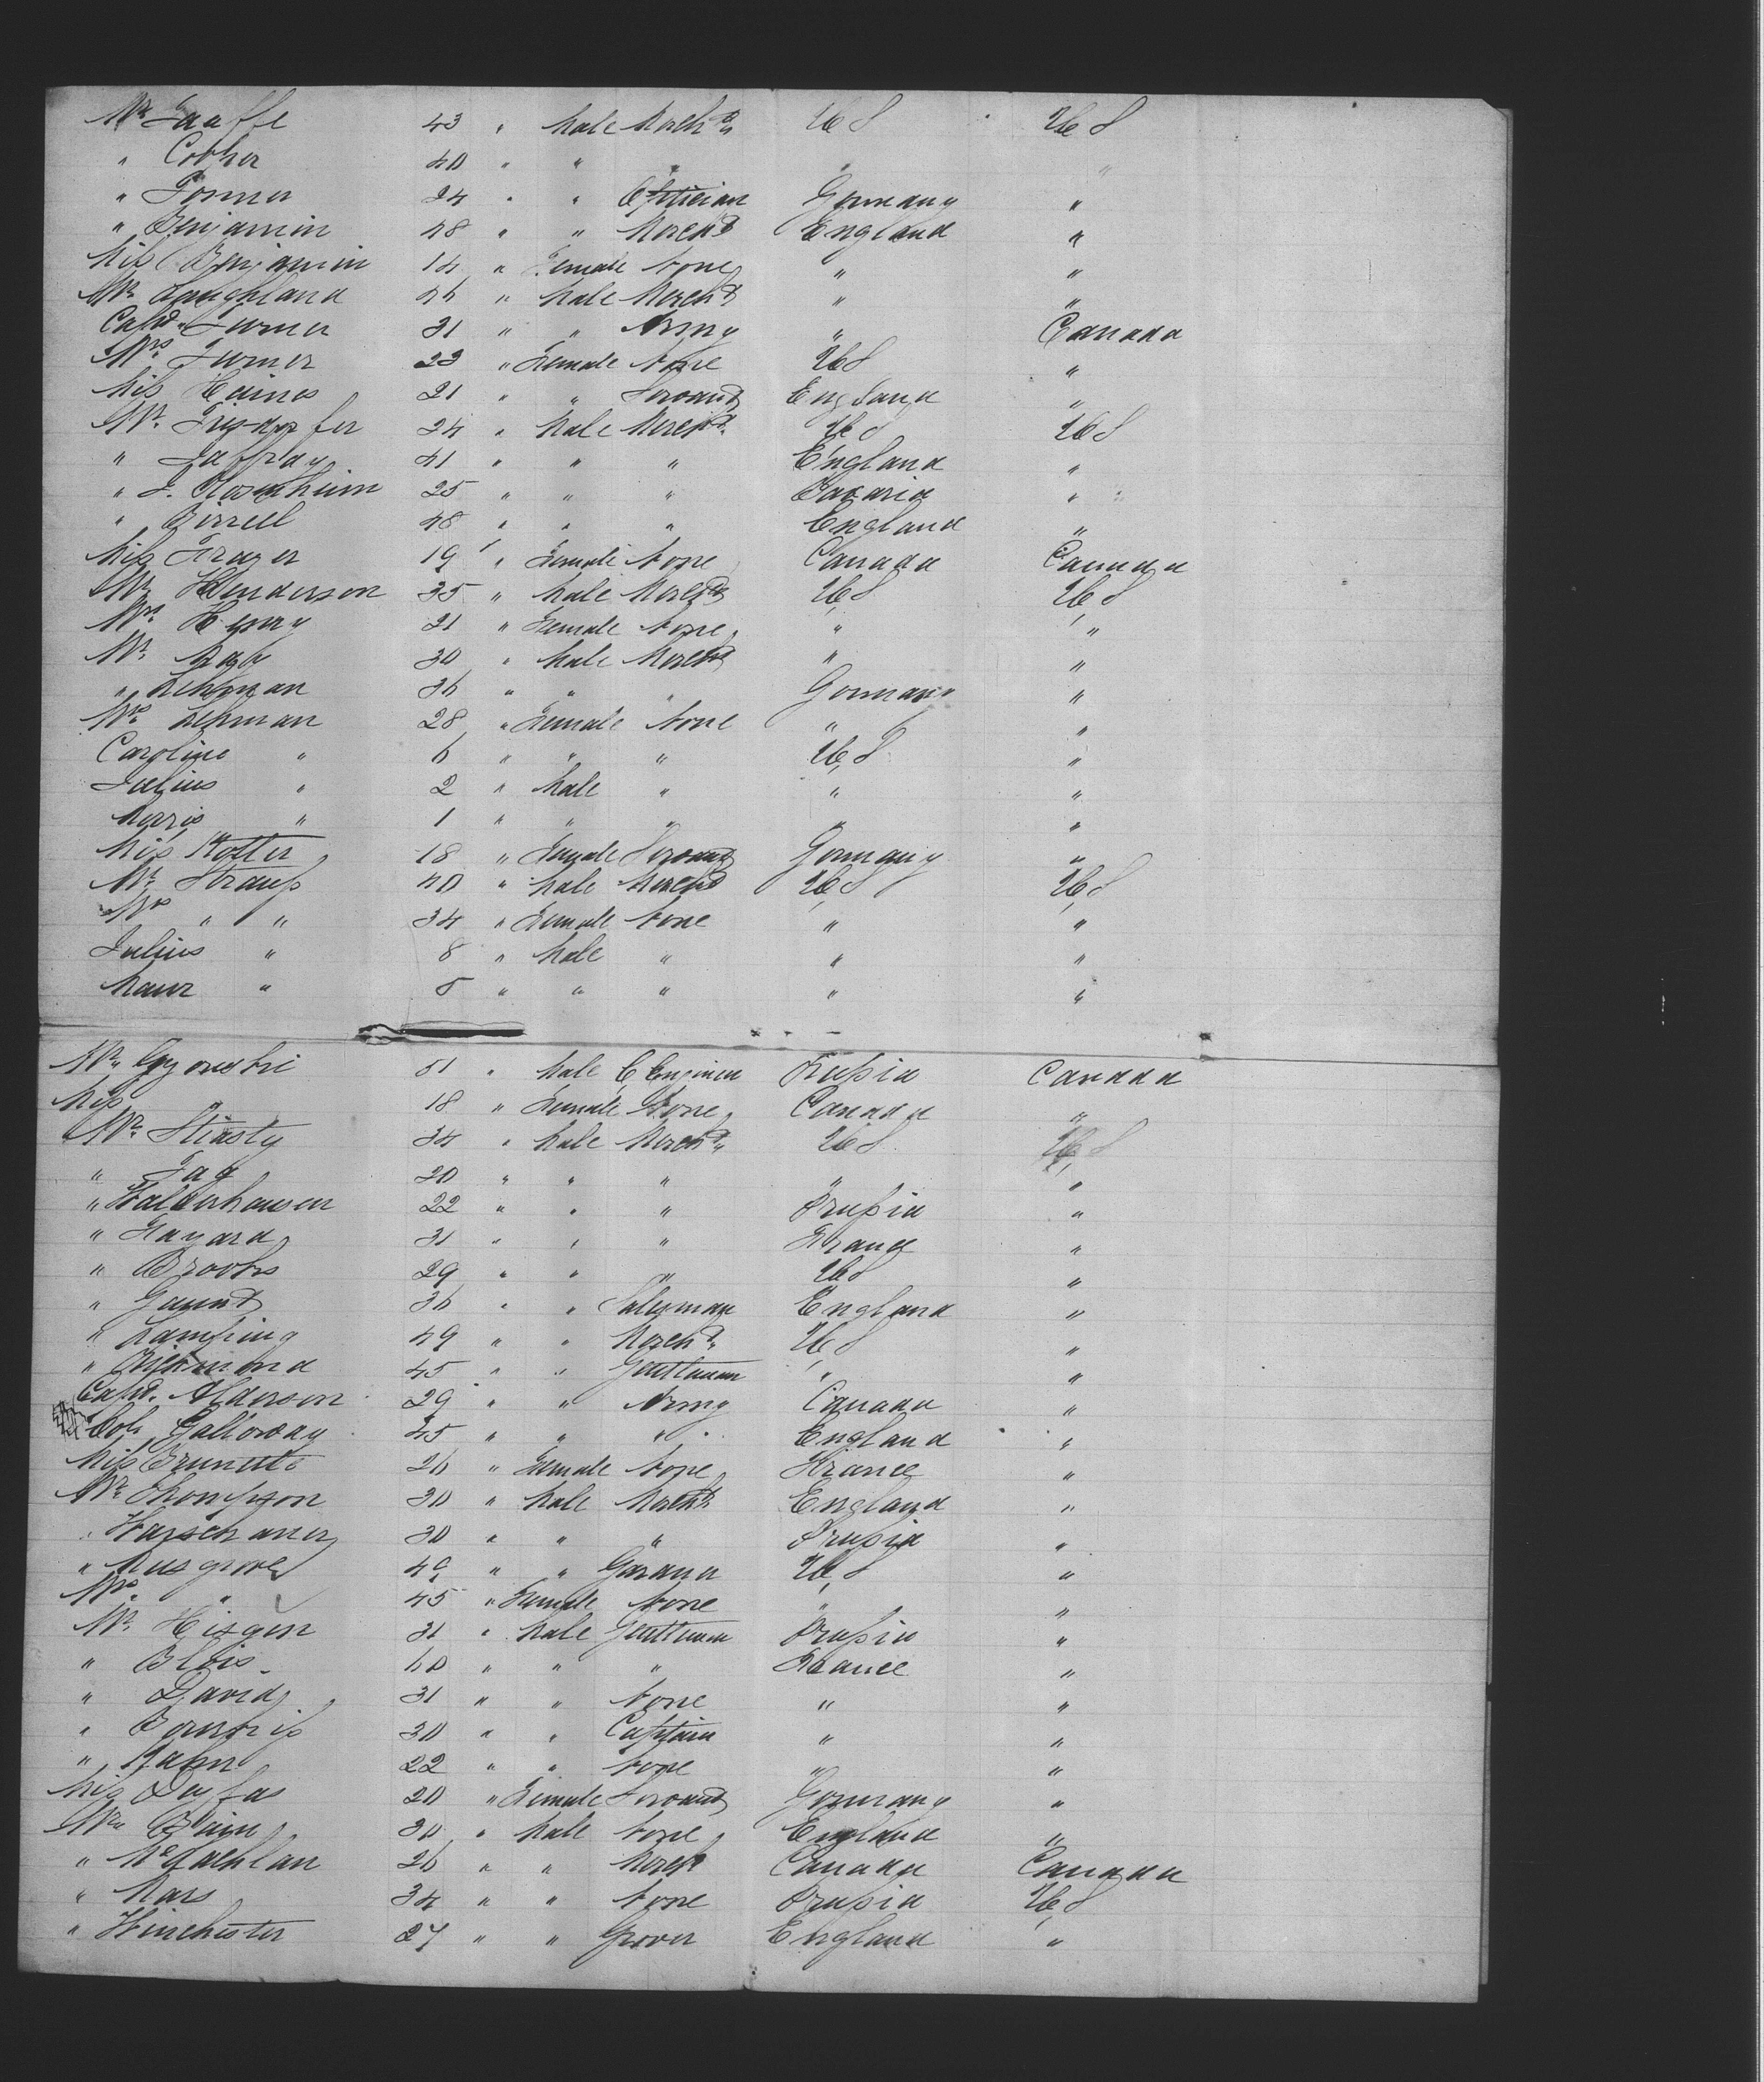 Mr. Jaaffe 43 " Male Merch't U S U S
" Cother 40 " " " " "
" Former 24 " " Optician Germany "
" Benjamin 48 " " Merch't England "
Miss Benjamin 14 " Female None " "
Mr. Laughland 46 " Male Merch't " "
Capt. Turner 31 " " Army " Canada
Mrs. Turner 23 " Female None U S "
Miss Haines 21 " " Servant England "
Mr. 24 " Male Merch't U S U S
" Jaffray 41 " " " England "
" J. Rosenheim 25 " " " Bavaria "
" Birrell 48 " " " England "
Miss Frazer 19 " Female None Canada Canada
Mr. Henderson 35 " Male Merch't U S U S
Mrs. Henry 21 " Female None " "
Mr. 30 " Male Merch't " "
" Lehman 36 " " " Germany "
Mrs. Lehman 28 " Female None " "
Caroline " 6 " " " U S "
Julius " 2 " Male " " "
Morris " 1 " " " " "
Miss Kotter 18 " Female Servant Germany "
Mr. Strauss 40 " Male Merch't U S U S
Mrs " " 34 " Female None " "
Julius " 8 " Male " " "
Maur " 5 " " " " "
Mr. Gzowski 51 " Male C Engineer Russia Canada
Miss " 18 " Female None Canada "
Mr. Stiasty 34 " Male Merch't U S U S
" Fag 20 " " " " "
" Walderhausen 22 " " " Prussia "
" Hayard 31 " " " France "
" Brooks 29 " " " U S "
" Gaunt 36 " " Salesman England "
" Lamping 49 " " Merch't U S "
" Richmond 45 " " Gentleman " "
Capt. Alderson 29 " " Army Canada "
Col. Galloway 45 " " " England "
Miss Brunette 26 " Female None France "
Mr. Thompson 30 " Male Merch't England "
" Warschauer 30 " " " Prussia "
" Musgrove 49 " " U S "
Mrs. " 45 " Female None " "
Mr. Hisgen 31 " Male Gentleman Prussia "
" Blois 60 " " " France "
" David 31 " " None " "
" 30 " " Captain " "
" Kahn 22 " " None " "
Miss Dryfas 20 " Female Servant Germany "
Mr. Blain 30 " Male None England "
" McLachlan 26 " " Merch't Canada Canada
" Mars 34 " " None Prussia U S
" Winchester 27 " " Grocer England "